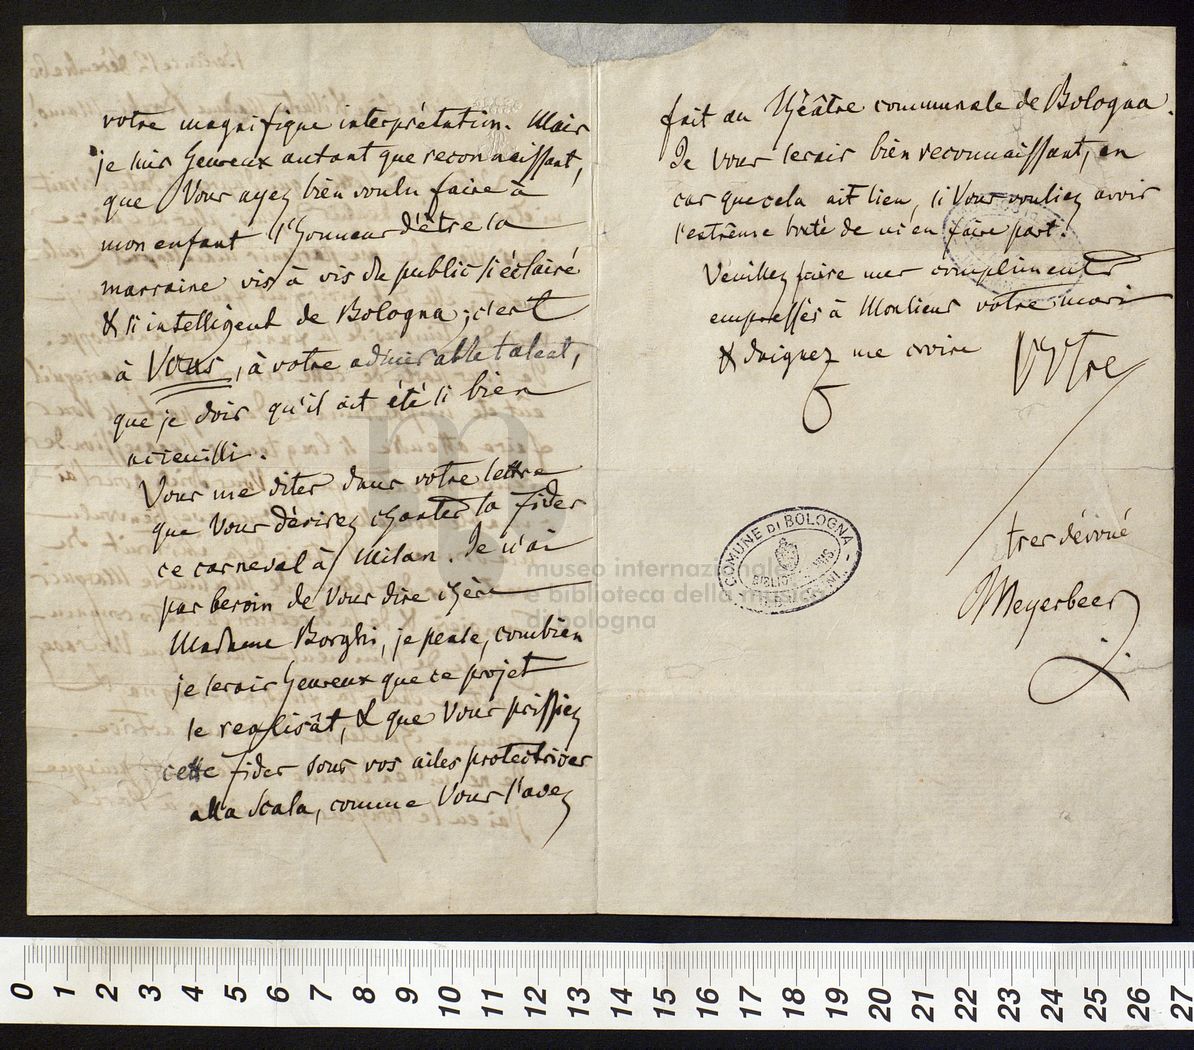 votre magnifique interprétation. Mais
je suis heureux autant que reconnaissant,
que Vous ayez bien voulu faire à
mon enfant l'honneur d'être la
marraine vis à vis du public si éclairé
& si intelligent de Bologna; c'est
à Vous, à votre admirable talent,
que je dois qu'il ait été si bien
accueilli.
Vous me dites dans votre lettre
que Vous désirez chanter la Fides
ce carneval à Milan. Je n'ai
pas besoin de Vous dire chère
Madame Borghi, je pense, combien
je serais heureux que ce projet
se realisât, & que Vous prissiez
cette Fides sous vos ailes protectrices
alla Scala, comme Vous l'avez
fait au Théâtre communale de Bologna.
Je Vous serais bien reconnaissant, en
cas que cela ait lieu, si Vous vouliez avoir
l'extrême bonté de m'en faire part.
Veuillez faire mes compliments
empressés à Monsieur votre mari
& daignez me croire Votre
tres dévoué
Meyerbeer
COMUNE DI BOLOGNA
museo internazionale
e biblioteca della musica
di bologna
0 1 2 3 4 5 6 7 8 9 10 11 12 13 14 15 16 17 18 19 20 21 22 23 24 25 26 27